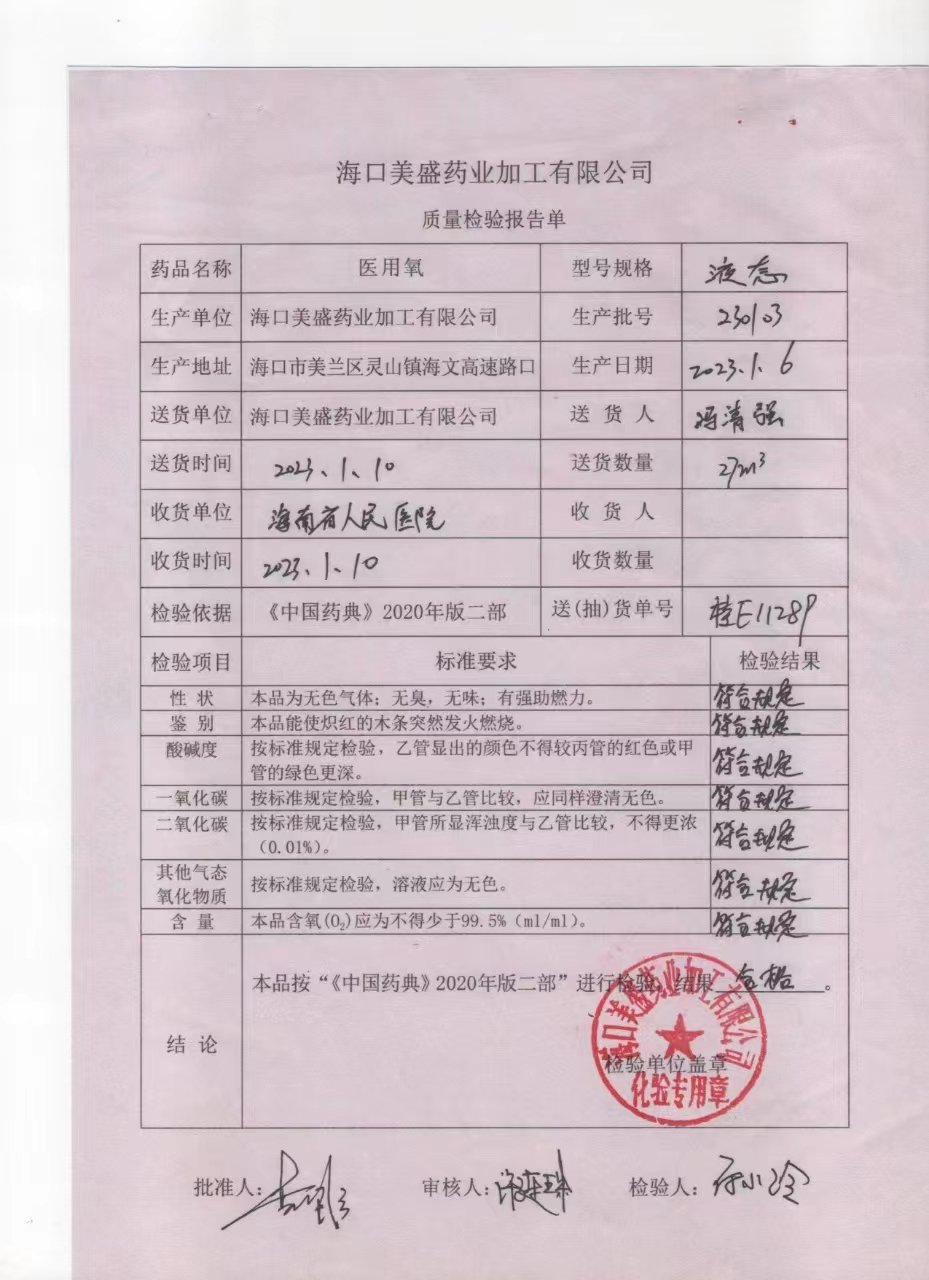 海口美盛药业加工有限公司
质量检验报告单
药品名称 医用氧 型号规格 液态
生产单位 海口美盛药业加工有限公司 生产批号 230103
生产地址 海口市美兰区灵山镇海文高速路口 生产日期 2023.1.6
送货单位 海口美盛药业加工有限公司 送货人 冯清强
送货时间 2023.1.10 送货数量 27m³
收货单位 海南省人民医院 收货人
收货时间 2023.1.10 收货数量
检验依据 《中国药典》2020年版二部 送(抽)货单号 桂E11289
检验项目 标准要求 检验结果
性状 本品为无色气体；无臭，无味；有强助燃力。 符合规定
鉴别 本品能使炽红的木条突然发火燃烧。 符合规定
酸碱度 按标准规定检验，乙管显出的颜色不得较丙管的红色或甲
管的绿色更深。 符合规定
一氧化碳 按标准规定检验，甲管与乙管比较，应同样澄清无色。 符合规定
二氧化碳 按标准规定检验，甲管所显浑浊度与乙管比较，不得更浓
（0.01%）。 符合规定
其他气态
氧化物质 按标准规定检验，溶液应为无色。 符合规定
含量 本品含氧(O₂)应为不得少于99.5%（ml/ml）。 符合规定
结论 本品按“《中国药典》2020年版二部”进行检验，结果合格。
海口美盛药业加工有限公司
检验单位盖章
化验专用章
批准人： 审核人： 检验人：